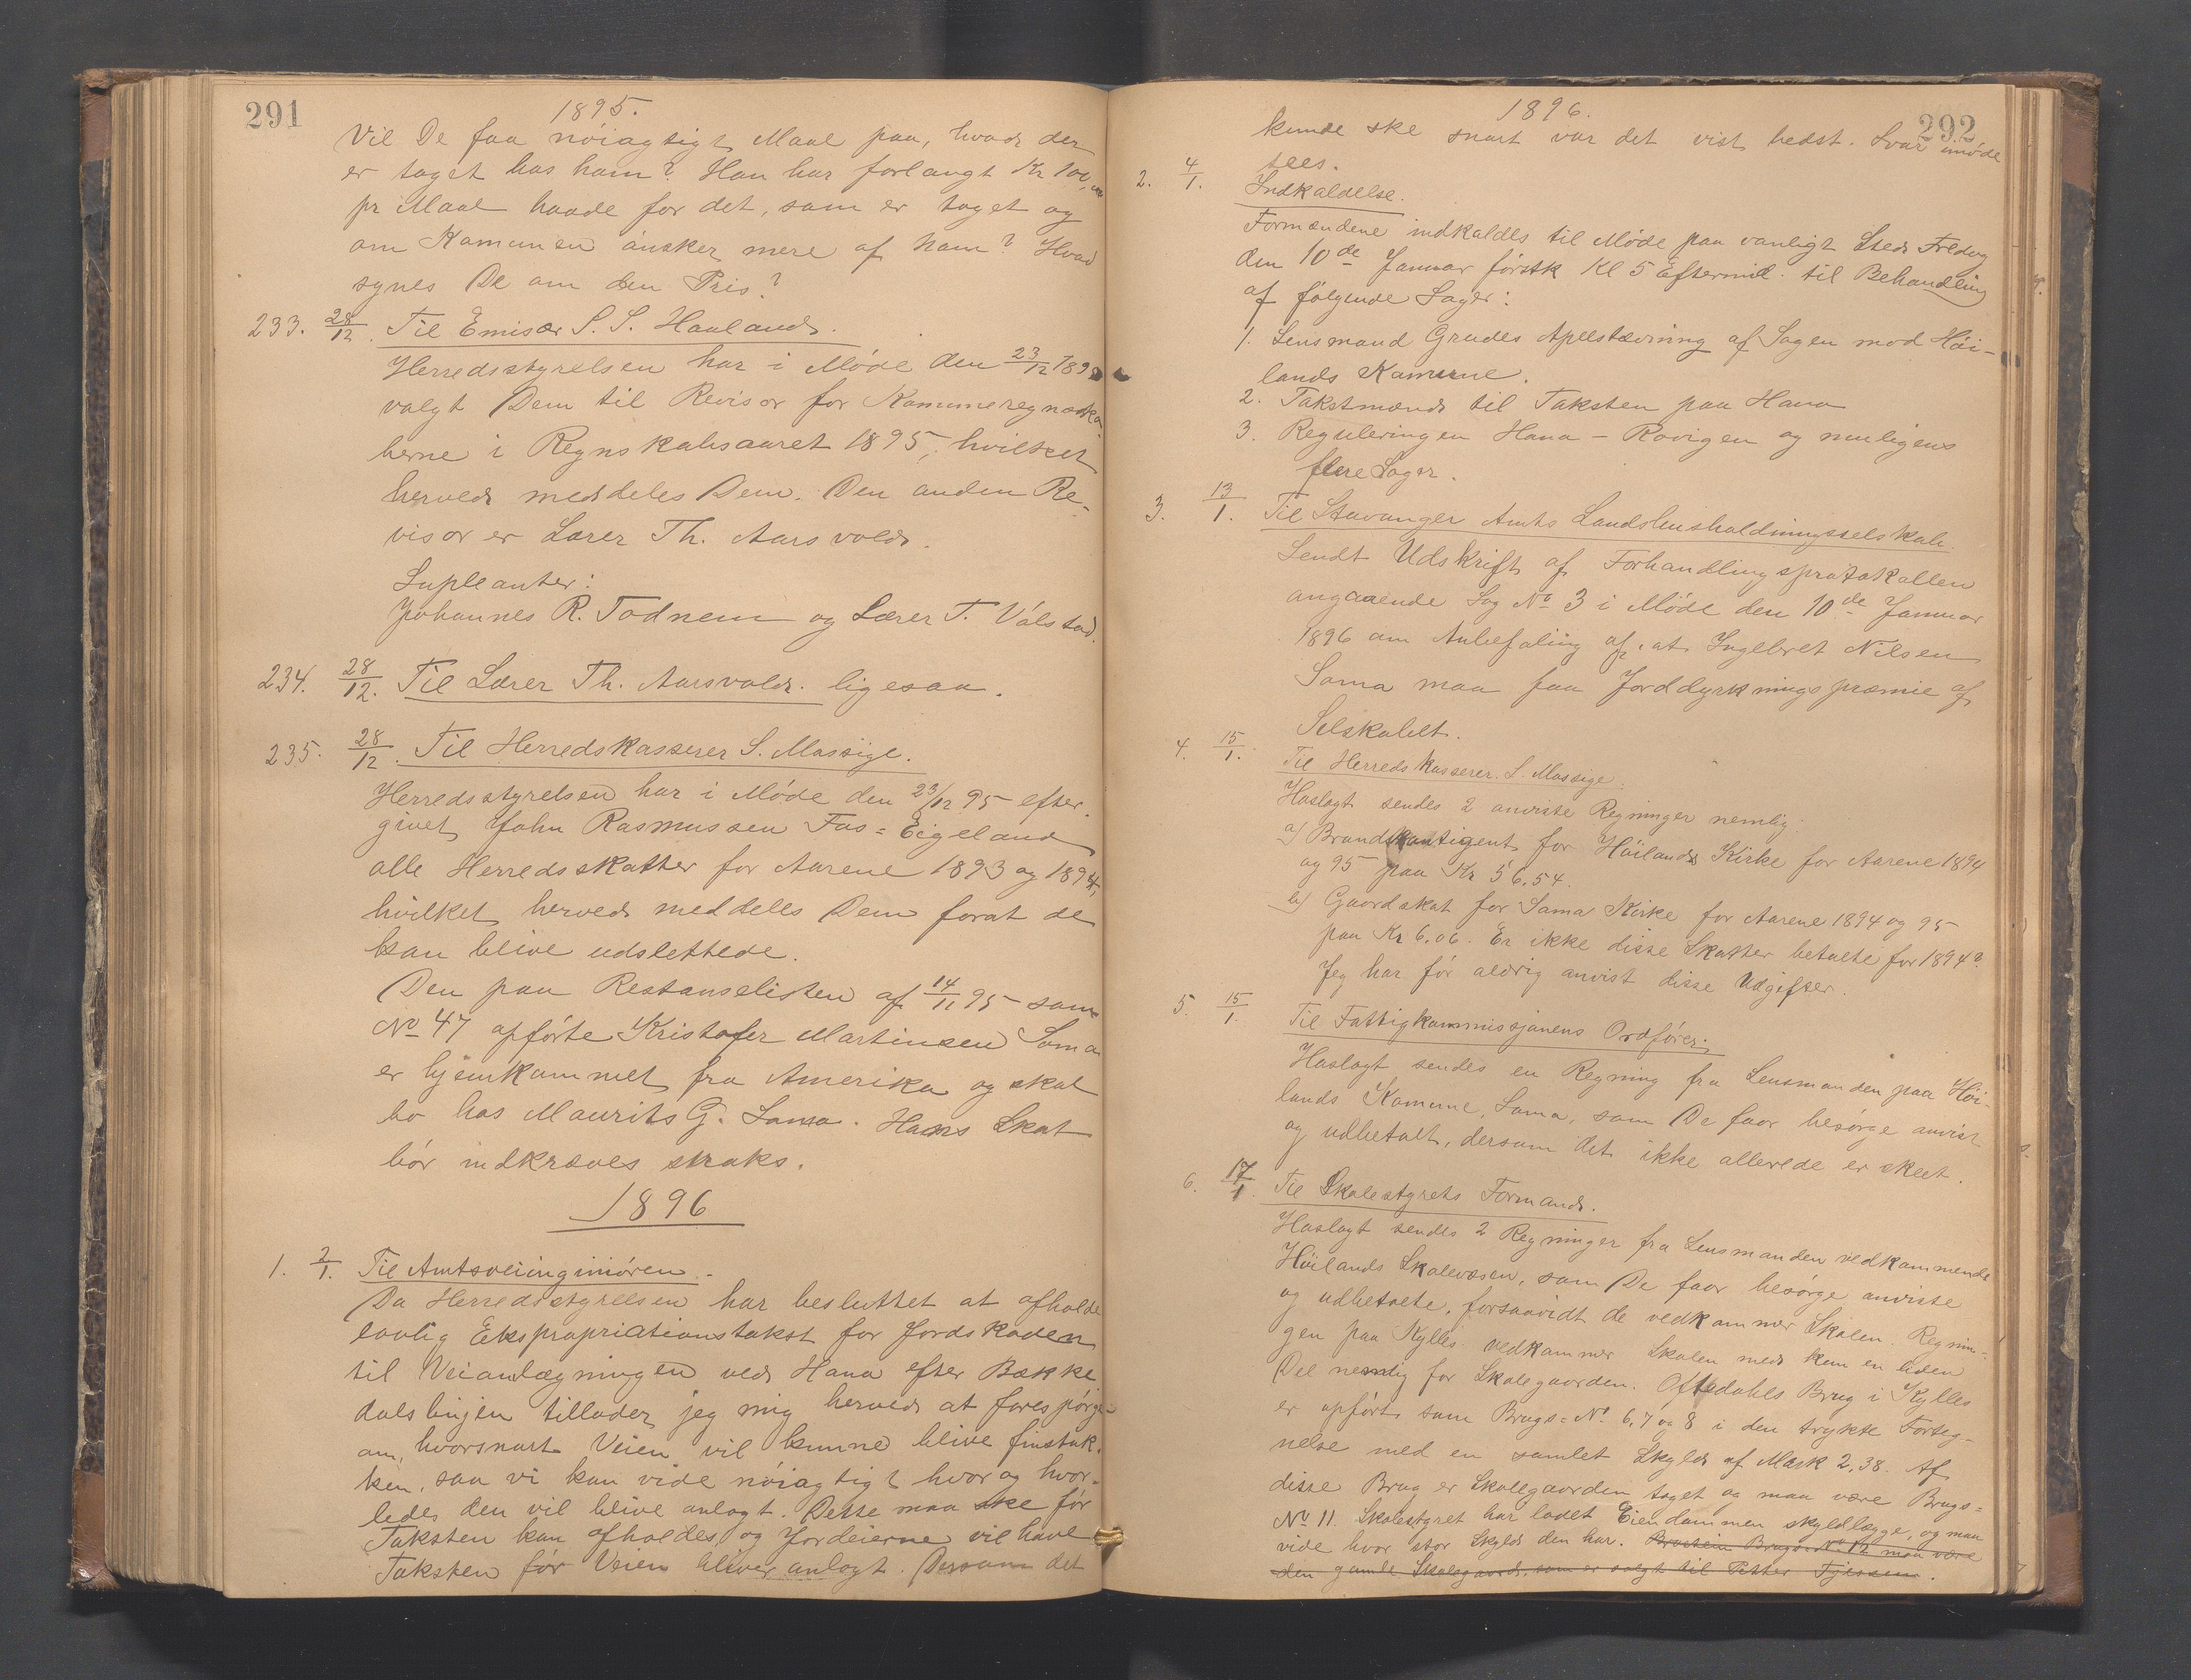 291
1895.
Vil De faa nöiagtigt Maal paa, hvad der
er taget hos ham? Han har forlangt Kr 100,00
pr Maal baade for det, som er taget og
om Komunen önsker mere af ham? Hvad
synes De om den Pris?
233. 28/12. Til Emisær S. S. Haaland.
Herredsstyrelsen har i Möde den 23/12 1895
valgt Dem til Revisor for Komuneregnska-
berne i Regnskabsaaret 1895, hvilket
herved meddeles Dem. Den anden Re-
visor er Lærer Th. Aarsvold.
Supleanter:
Johannes R. Todnem og Lærer T. Válstad.
234. 28/12. Til Lærer Th. Aarsvold. ligesaa.
235. 28/12. Til Herredskasserer S. Massige.
Herredsstyrelsen har i Möde den 23/12 95 efter-
givet John Rasmussen Fos=Eigeland
alle Herredsskatter for Aarene 1893 og 1894,
hvilket herved meddeles Dem forat de
kan blive udslettede.
Den paa Restanselisten af 14/11 95 som
No 47 opförte Kristofer Martinsen Soma
er hjemkommet fra Amerika og skal
bo hos Maurits G. Soma. Hans Skat
bör indkræves straks.
1896
1. 2/1. Til Amtsveiingniören.
Da Herredsstyrelsen har besluttet at afholde
lovlig Ekspropriationstakst for Jordskaden
til Veianlægningen ved Hana efter Bække
dalslinjen tillader jeg mig herved at forespörge
om, hvorsnart Veien vil kunne blive finstuk-
ken, saa vi kan vide nöiagtigt hvor og hvor-
ledes den vil blive anlagt. Dette maa ske för
Taksten kan afholdes, og Jordeierne vil have
Taksten för Veien bliver anlagt. Dersom det
1896.
292
kunde ske snart var det vist bedst. Svar imöde
sees.
2. 4/1. Indkaldelse.
Formændene indkaldes til Möde paa vanligt Sted Fredag
den 10de Januar förstk Kl 5 Eftermid. til Behandling
af fölgende Sager:
1. Lensmand Grudes Apelstævning af Sagen mod Höi-
lands Komune.
2. Takstmænd til Taksten paa Hana
3. Reguleringen Hana - Rovigen og muligens
flere Sager.
3. 13/1. Til Stavanger Amts Landshusholdningsselskab.
Sendt Udskrift af Forhandlingsprotokollen
angaaende Sag No 3 i Möde den 10de Januar
1896 om Anbefaling af, at Ingebret Nilsen
Soma maa faa Jorddyrkningspræmie af
Selskabet.
4. 15/1. Til Herredskasserer. S. Massige.
Hoslagt sendes 2 anviste Regninger nemlig:
a) Brandkontigent for Höilands Kirke for Aarene 1894
og 95 paa Kr 56.54.
b) Gaardskat for Soma Kirke for Aarene 1894 og 95
paa Kr 6.06. Er ikke disse Skatter betalte for 1894?
Jeg har för aldrig anvist disse Udgifter.
5. 15/1. Til Fattigkommissjonens Ordförer.
Hoslagt sendes en Regning fra Lensmanden paa Höi-
lands Komune, Soma, som De faar besörge anvist
og udbetalt, dersom det ikke allerede er skeet.
6. 17/1. Til Skolestyrets Formand.
Hoslagt sendes 2 Regninger fra Lensmanden vedkommende
Höilands Skolevæsen, som De faar besörge anviste
og udbetalte, forsaavidt de vedkommer Skolen. Regnin-
gen paa Kylles vedkommer Skolen med kun en liden
Del nemlig for Skolegaarden. Oftedahls Brug i Kylles
er opfört som Brugs=No. 6, 7 og 8 i den trykte Forteg-
nelse med en samlet Skyld af Mark 2,38. Af
disse Brug er Skolegaarden taget og maa være Brugs=
No 11. Skolestyret har ladet Eiendommen skyldlægge, og maa
vide hvor stor Skyld den har. Brustein Brugs=No 12 maa være
den gamle Skolegaard, som er solgt til Petter Tjessem.